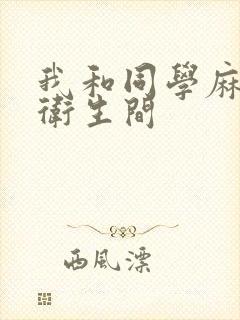 我和同學麻
衛生間
西風漂